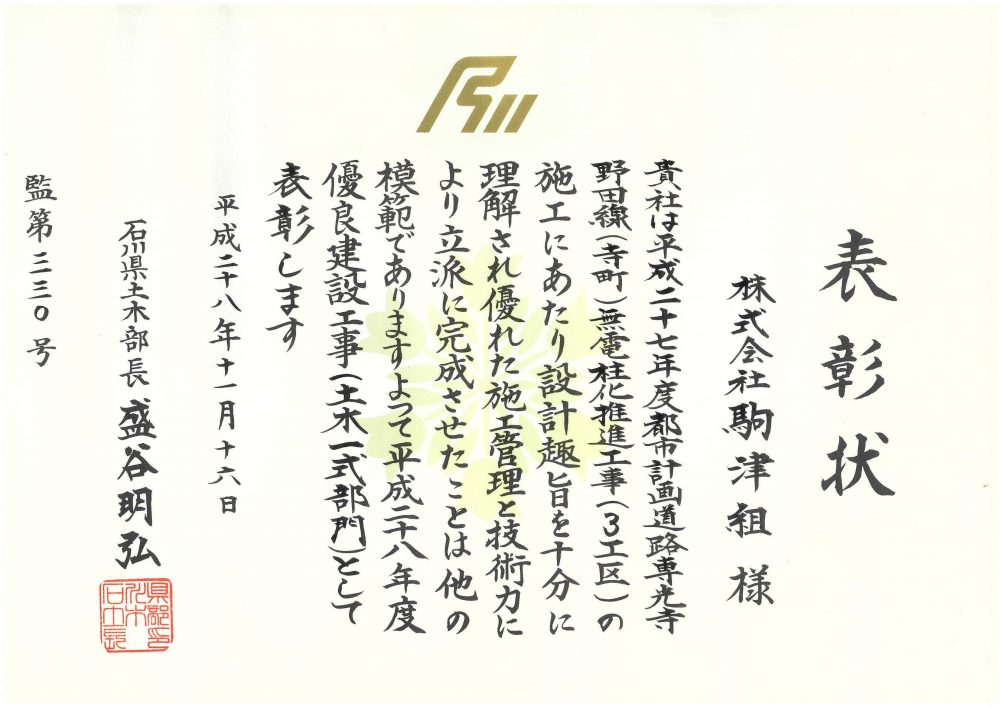 表彰状
株式会社駒津組 様
貴社は平成二十七年度都市計画道路専光寺
野田線(寺町)無電柱化推進工事(3工区)の
施工にあたり設計趣旨を十分に
理解され優れた施工管理と技術力に
より立派に完成させたことは他の
模範でありますよつて平成二十八年度
優良建設工事(土木一式部門)として
表彰します
平成二十八年十一月十六日
石川県土木部長 盛谷明弘
監第三三〇号